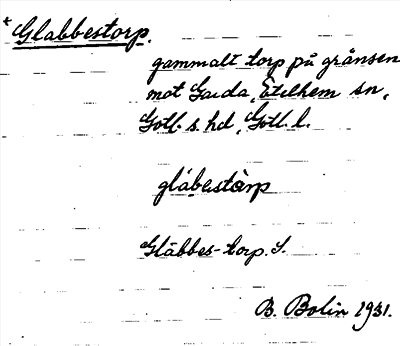 *Glabbestorp.
gammalt torp på gränsen
mot Garda, Etelhem sn,
Gotl. s. hd, Gotl. l.
glábestàrp
Glàbbes-torp. S.
B. Bolin 1931.